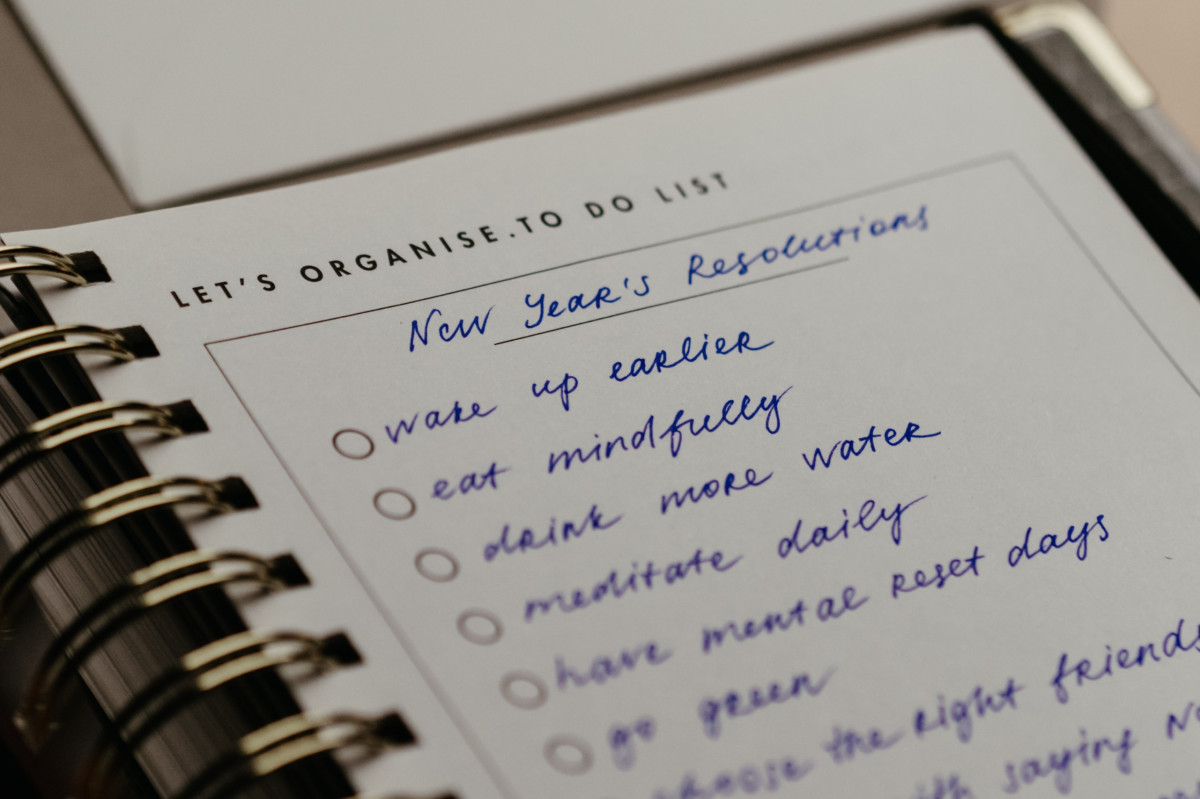 LET'S ORGANISE.TO DO LIST
New Year's Resolutions
wake up earlier
eat mindfully
drink more water
meditate daily
have mental reset days
go green
choose the right friends
with saying No